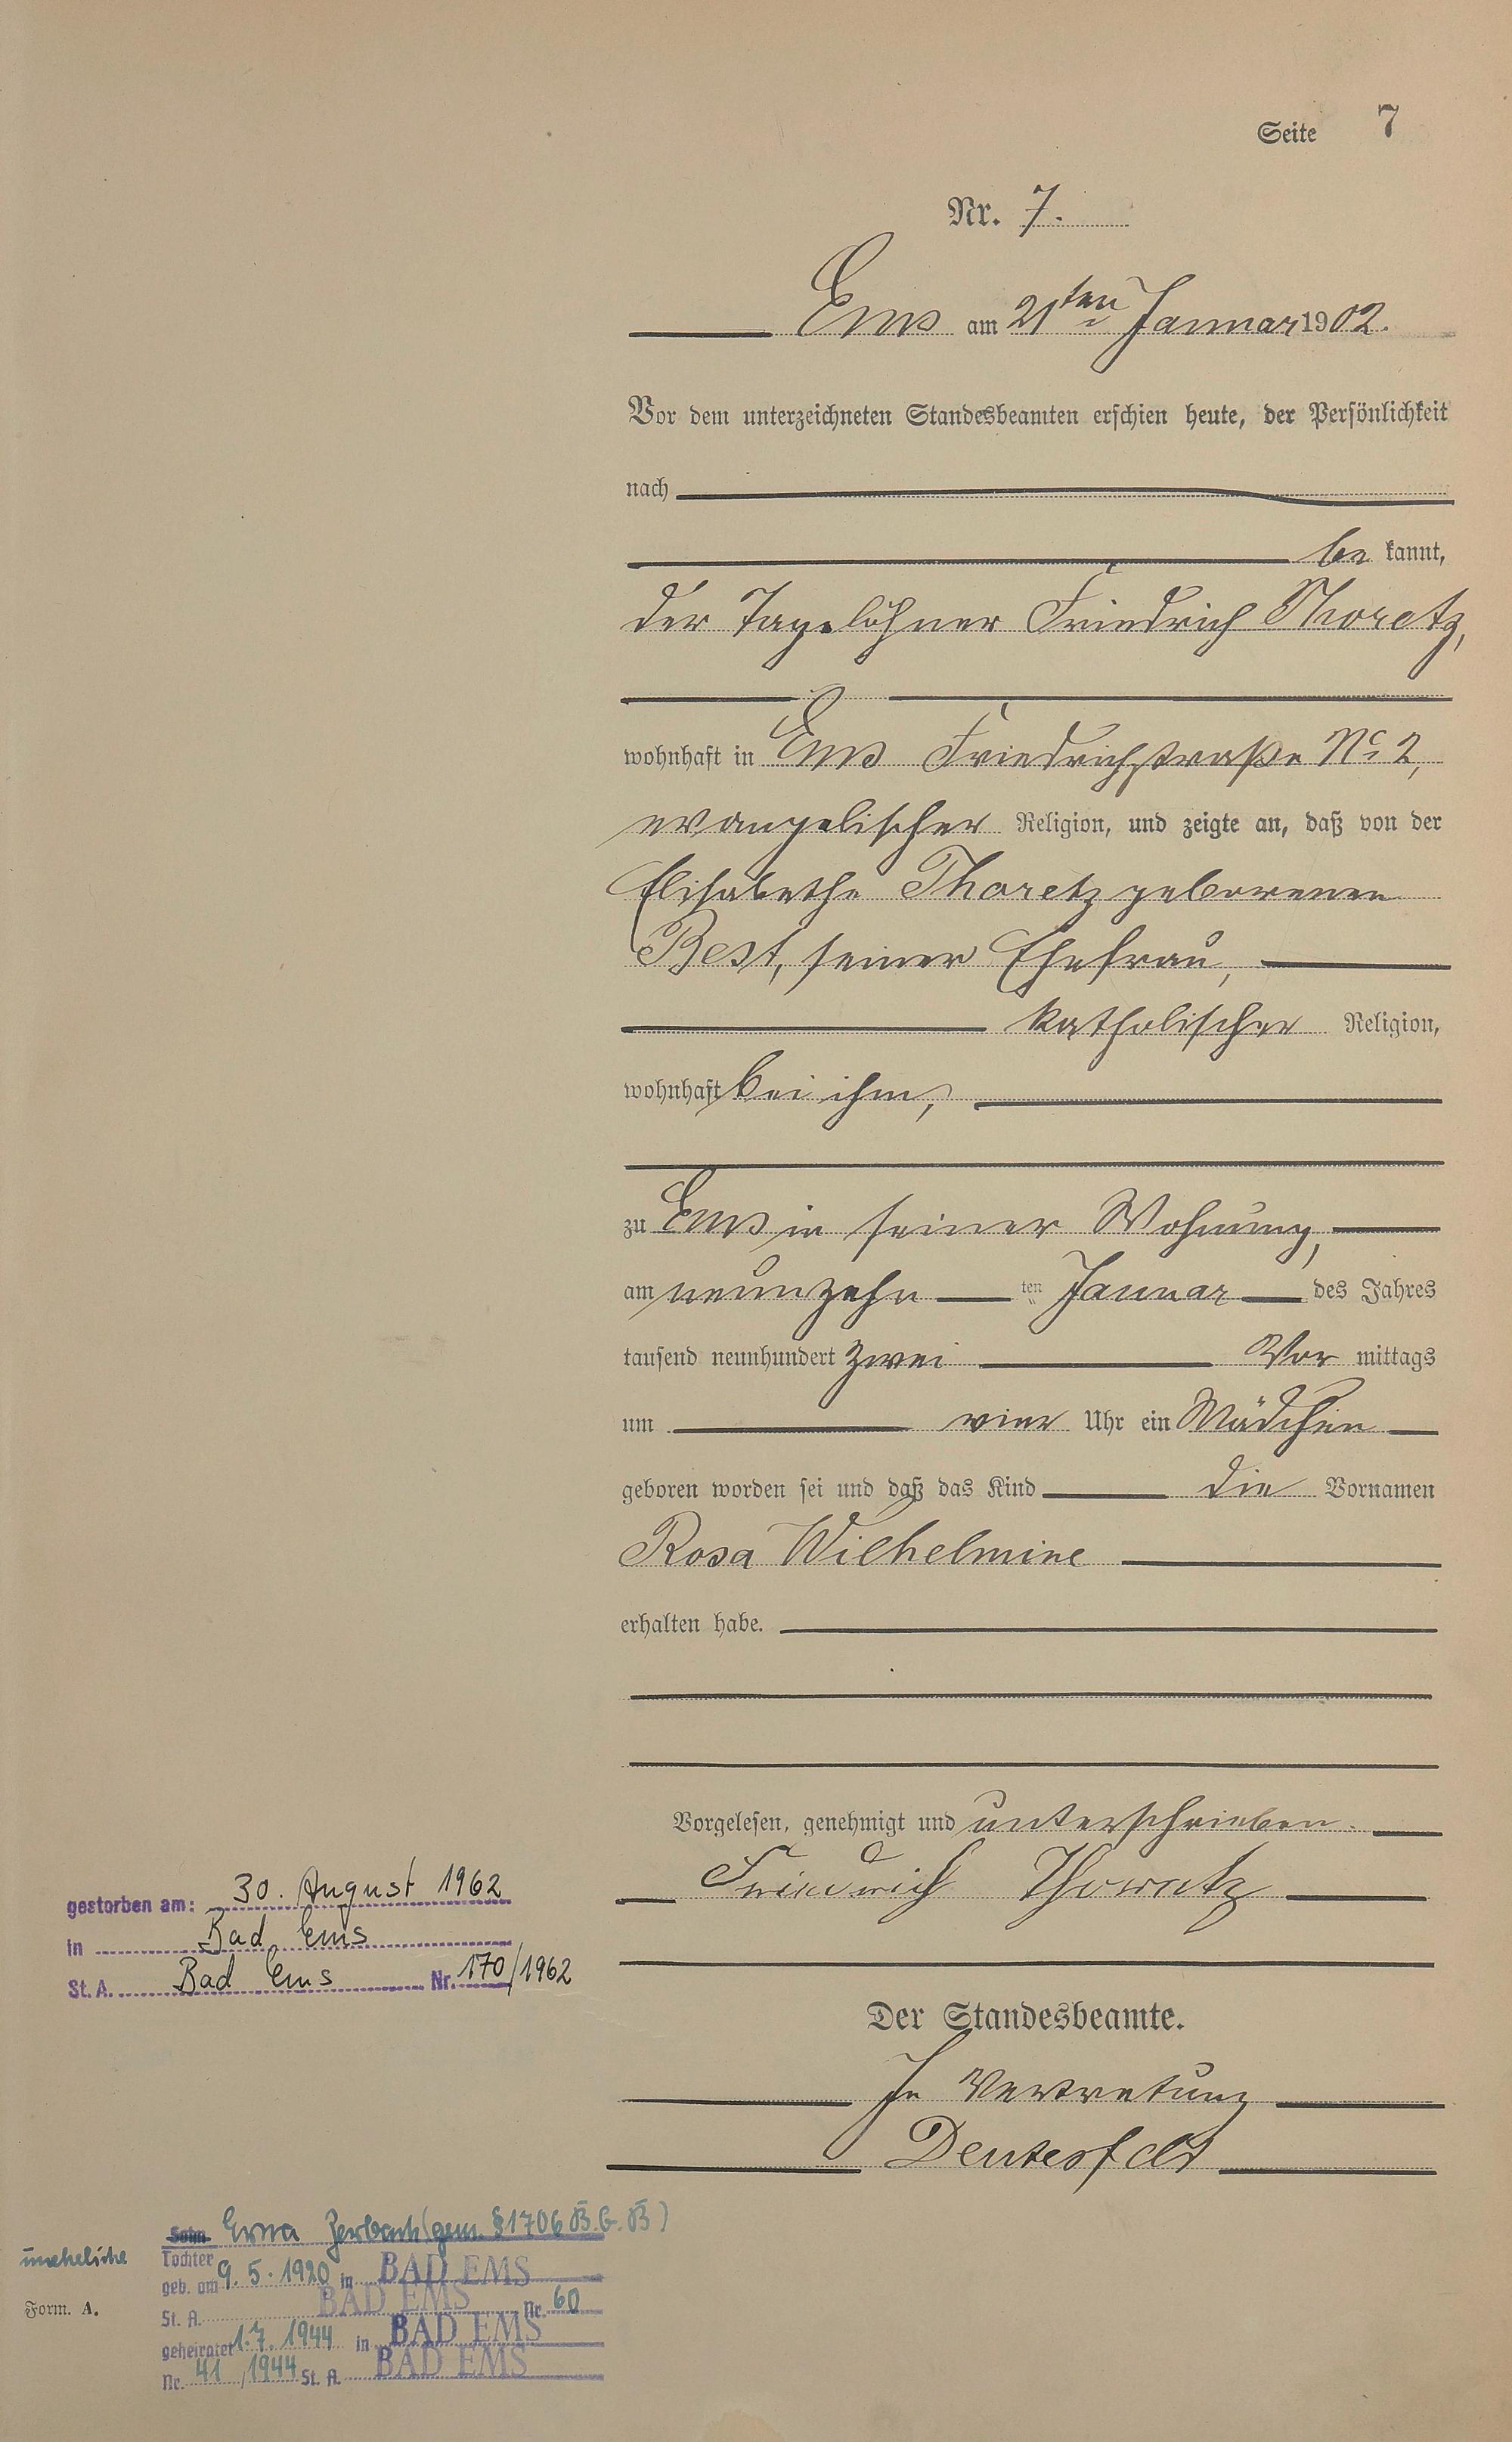 Seite 7
Nr. 7.
Ems am 21ten Januar 1902.
Vor dem unterzeichneten Standesbeamten erschien heute, der Persönlichkeit
nach
be kannt,
der Tagelöhner Friedrich Thoretz,
wohnhaft in Ems Friedrichstraße No 2,
evangelischer Religion, und zeigte an, daß von der
Elisabethe Thoretz geborenen
Best, seiner Ehefrau,
katholischer Religion,
wohnhaft bei ihm,
zu Ems in seiner Wohnung,
am neunzehn ten Januar des Jahres
tausend neunhundert zwei Vor mittags
um vier Uhr ein Mädchen
geboren worden sei und daß das Kind die Vornamen
Rosa Wilhelmine
erhalten habe.
Vorgelesen, genehmigt und unterschrieben.
Friedrich Thoretz
Der Standesbeamte.
In Vertretung
gestorben am: 30. August 1962
in Bad Ems
St. A. Bad Ems Nr. 170/1962
Sohn Erna Zerbach (gem. §1706 B.G.B)
uneheliche Tochter
geb. am 9. 5. 1920 in BAD EMS
St. A. BAD EMS Nr. 60
geheiratet 1. 7. 1944 in BAD EMS
Nr. 41/1944 St. A. BAD EMS
Form. A.